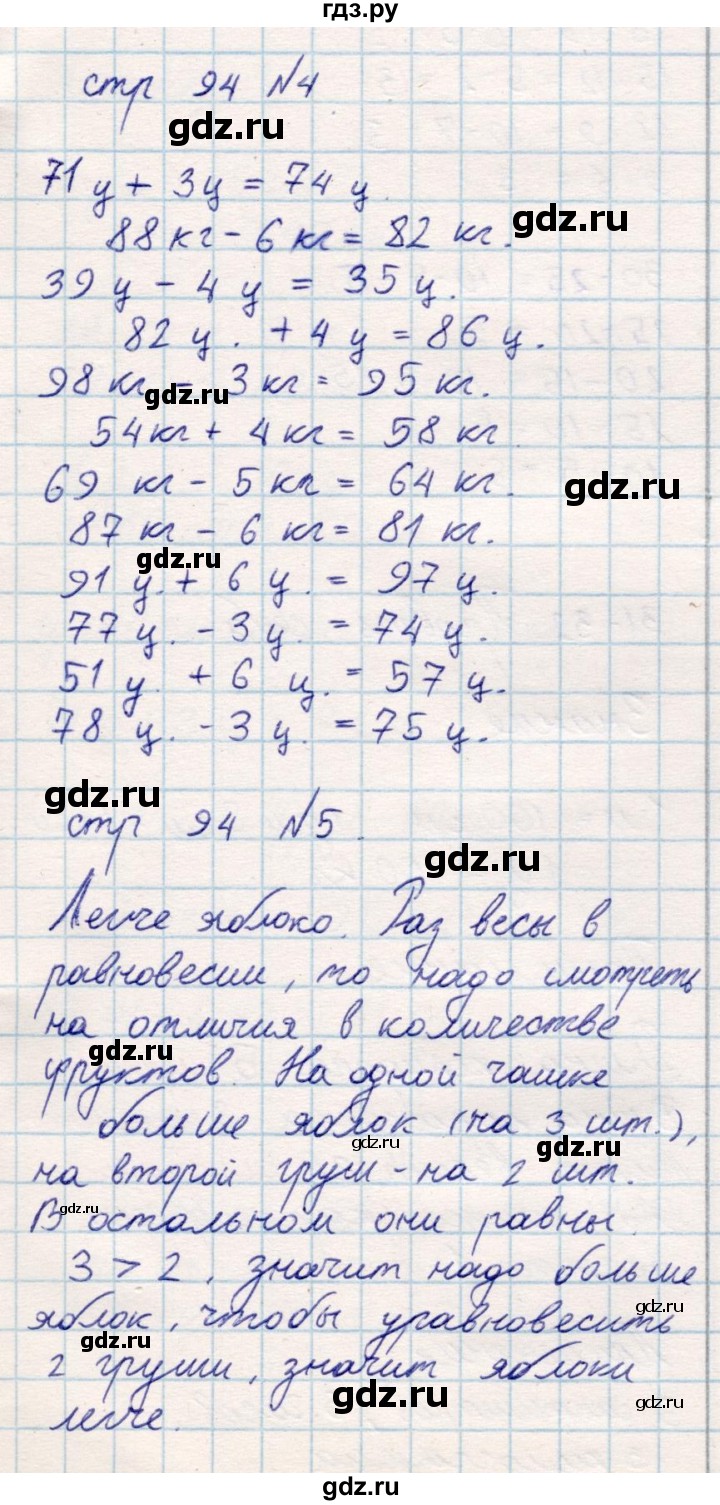 гдз.ру
стр 94 №4
gdz.ru
71 ц + 3 ц = 74 ц.
gdz.ru
88 кг - 6 кг = 82 кг.
39 ц - 4 ц = 35 ц.
82 ц. + 4 ц = 86 ц.
98 кг - 3 кг = 95 кг.
gdz.ru
54 кг + 4 кг = 58 кг
69 кг - 5 кг = 64 кг.
gdz.ru
87 кг - 6 кг = 81 кг.
gdz.ru
91 ц. + 6 ц. = 97 ц.
77 ц. - 3 ц. = 74 ц.
51 ц. + 6 ц. = 57 ц.
78 ц. - 3 ц. = 75 ц.
gdz.ru
стр 94 №5.
gdz.ru
Легче яблоко. Раз весы в
равновесии, то надо смотреть
на отличия в количестве
gdz.ru
фруктов. На одной чашке
больше яблок (на 3 шт.),
gdz.ru
gdz.ru
на второй груш - на 2 шт.
gdz.ru
В остальном они равны.
3 > 2, значит надо больше
gdz.ru
яблок, чтобы уравновесить
gdz.ru
2 груши, значит яблоки
gdz.ru
gdz.ru
легче.
gdz.ru